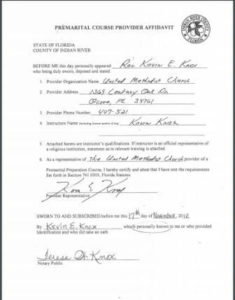 PREMARITAL COURSE PROVIDER AFFIDAVIT
STATE OF FLORIDA
COUNTY OF INDIAN RIVER
BEFORE ME this day personally appeared Rev. Kevin E. Knox
who being duly sworn, deposed and stated
1 Provider Organization Name United Methodist Church
2 Provider Address 1365 Century Oak Dr.
Ocoee, FL 34761
3 Provider Phone Number
4 Instructors Name Kevin Knox
5 Attached hereto are instructor's qualifications. If instructor is an official representative of a
religious institution, statement as to relevant training is attached
6 As a representative of The United Methodist Church provider of a
Premarital Preparation Course, I hereby certify and attest that I have met the requirements
set forth in Section 741.0305, Florida Statutes
Provider Representative
SWORN TO AND SUBSCRIBED before me this 17th day of November, 2012
By Kevin E. Knox which personally known to me or who provided
identification and who did take an oath
Notary Public